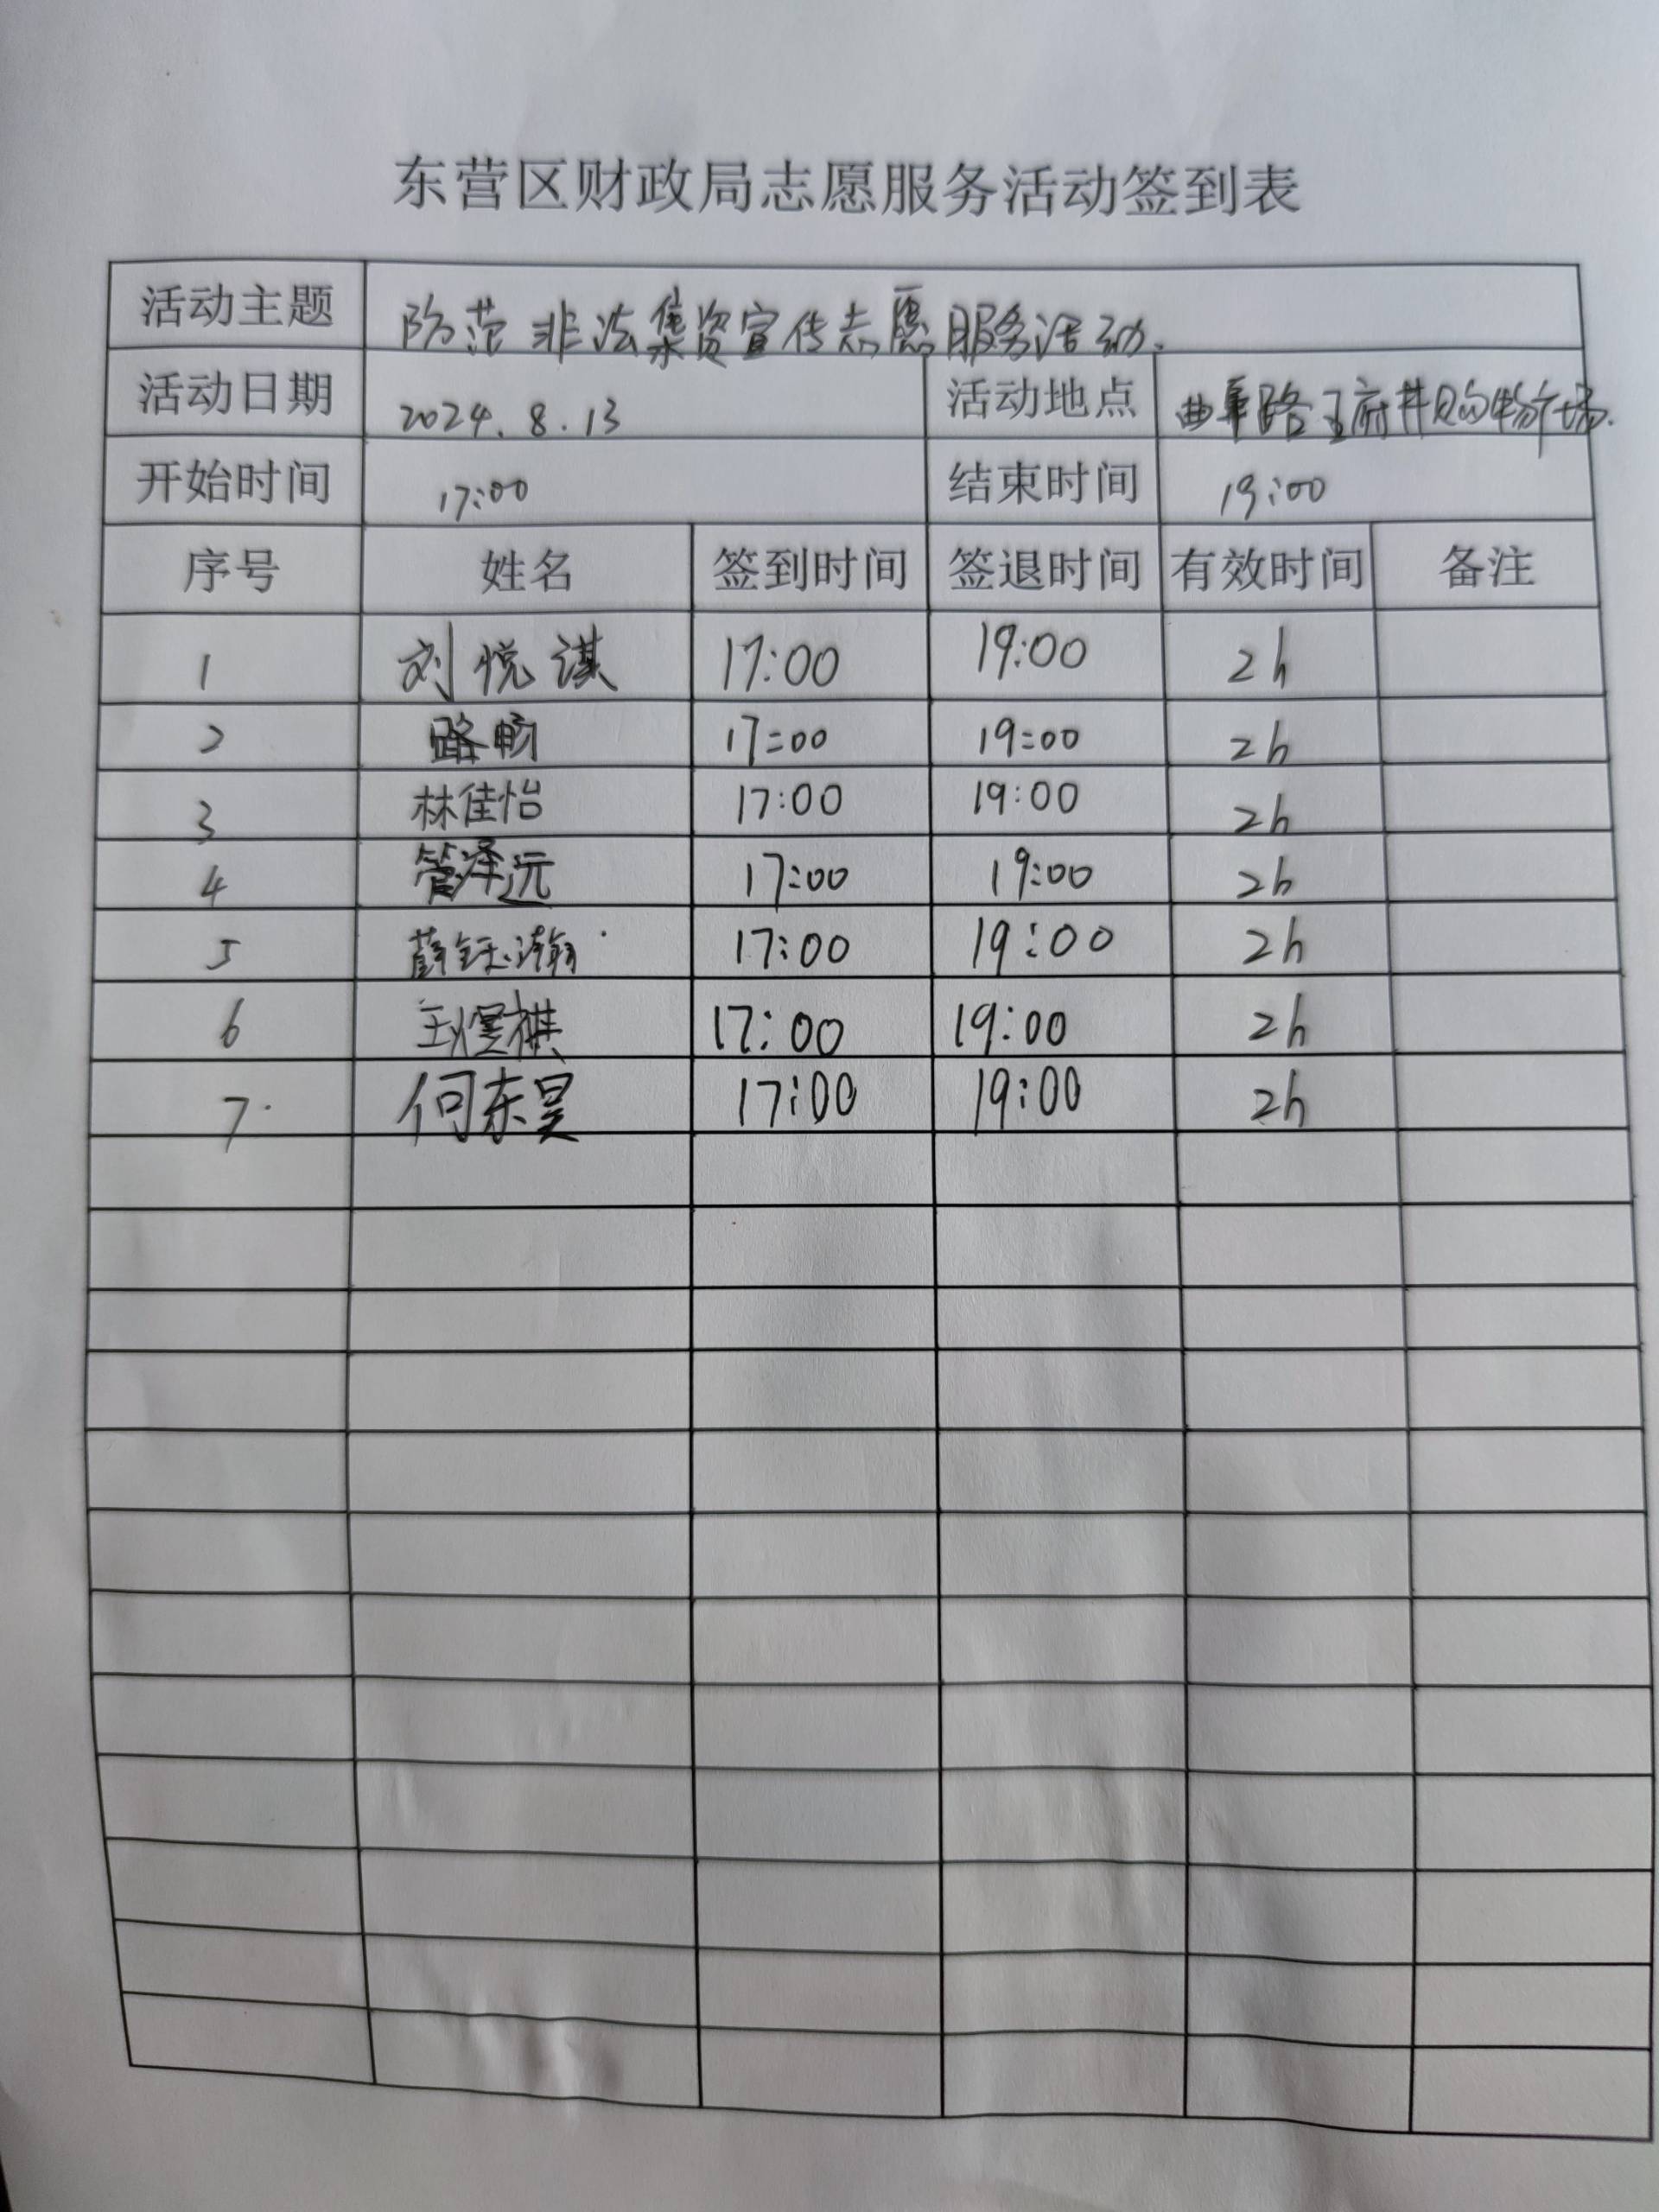 东营区财政局志愿服务活动签到表
活动主题 防范非法集资宣传志愿服务活动.
活动日期 2024.8.13 活动地点 曲阜路王府井购物广场.
开始时间 17:00 结束时间 19:00
序号 姓名 签到时间 签退时间 有效时间 备注
1 刘悦谋 17:00 19:00 2h
2 路畅 17:00 19:00 2h
3 林佳怡 17:00 19:00 2h
4 管泽远 17:00 19:00 2h
5 薛钰瀚 17:00 19:00 2h
6 17:00 19:00 2h
7. 何东昊 17:00 19:00 2h